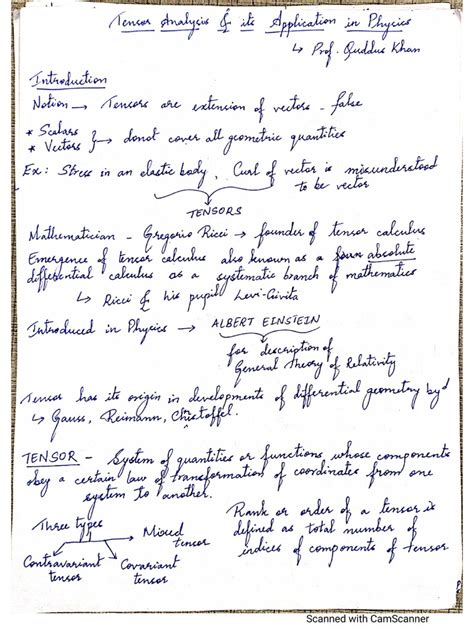 Tensor Analysis & its Application in Physics
↳ Prof. Quddus Khan
Introduction
Notion → Tensors are extension of vectors - false
* Scalars
* Vectors } → donot cover all geometric quantities
Ex: Stress in an elastic body, Curl of vector is misunderstood
to be vector
TENSORS
Mathematician - Gregorio Ricci → founder of tensor calculus
Emergence of tensor calculus also known as a absolute
differential calculus as a systematic branch of mathematics
↳ Ricci & his pupil Levi-Civita
Introduced in Physics → ALBERT EINSTEIN
for description of
General Theory of Relativity
Tensor has its origin in developments of differential geometry by
↳ Gauss, Reimann, Christoffel.
TENSOR - System of quantities or functions, whose components
obey a certain law of transformation of coordinates from one
system to another.
Three types
Mixed
tensor
Contravariant
tensor
Covariant
tensor
Rank or order of a tensor is
defined as total number of
indices of components of tensor
Scanned with CamScanner